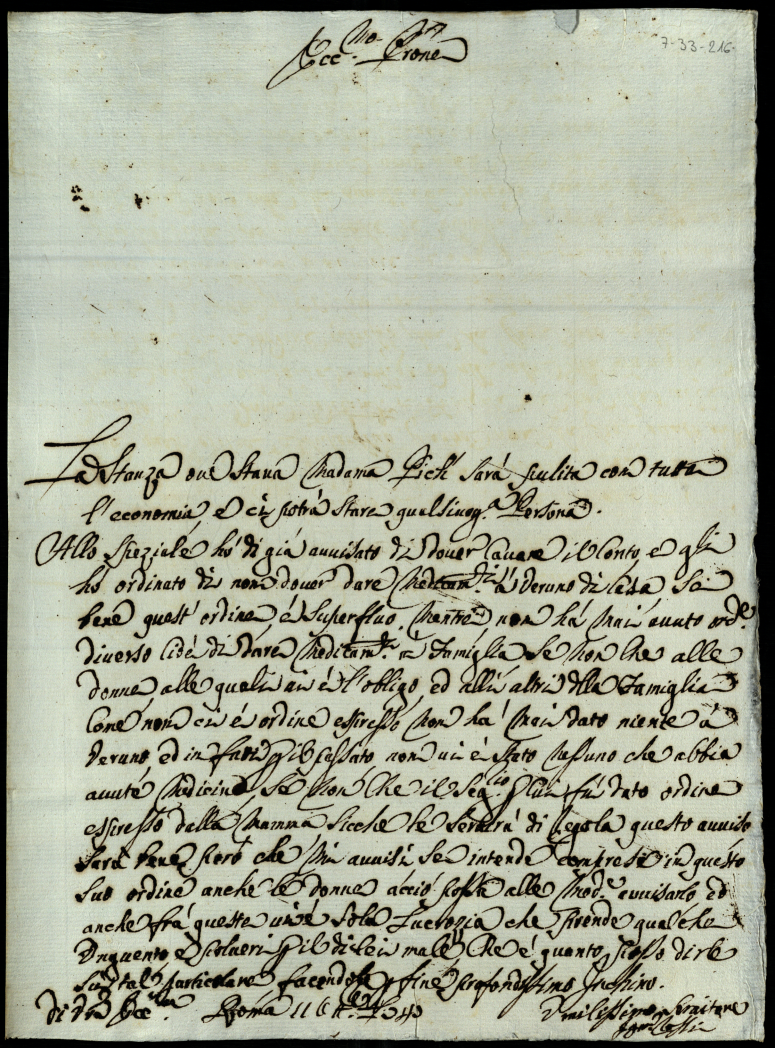 7-33-216.
Ecc.mo Prone
La Stanza ove Stava Madama Picli Sará pulita con tutta
l'economia e ci potrá Stare qualsivog.a Persona.
Allo Speziale hó di giá avvisato di dover Cavare il Conto, e gli
ho ordinato di non dover dare Medicam.ti á veruno di Casa Se
bene quest'ordine é Superfluo, Mentre non há Mai avuto ord.e
diverso Cioé di dare Medicam.ti a Famiglia Se non Che alle
donne alle quali vi é l'obligo, ed alli altri della Famiglia
Come non ci é ordine espresso non ha Mai dato niente á
veruno ed in fatti p il passato non vi é stato Nessuno che abbia
avute Medicine, Se Non Che il Seg.rio p lui fú dato ordine
espresso dalla Mamma Sicche le Servirá di regola questo avviso
Sará bene peró che Mi avvisi Se intende Comprese in questo
Suo ordine anche le donne acció possa alle Mod.e avvisarlo, ed
anche frá queste vi é Sola Lucrezia che prende qualche
Unguento e polveri p il di lei male, Che é quanto posso dirle
Su tal particolare facendole p fine profondissimo Inchino.
Di V.ra Ecc.za Roma 11
Umilissimo Servitore